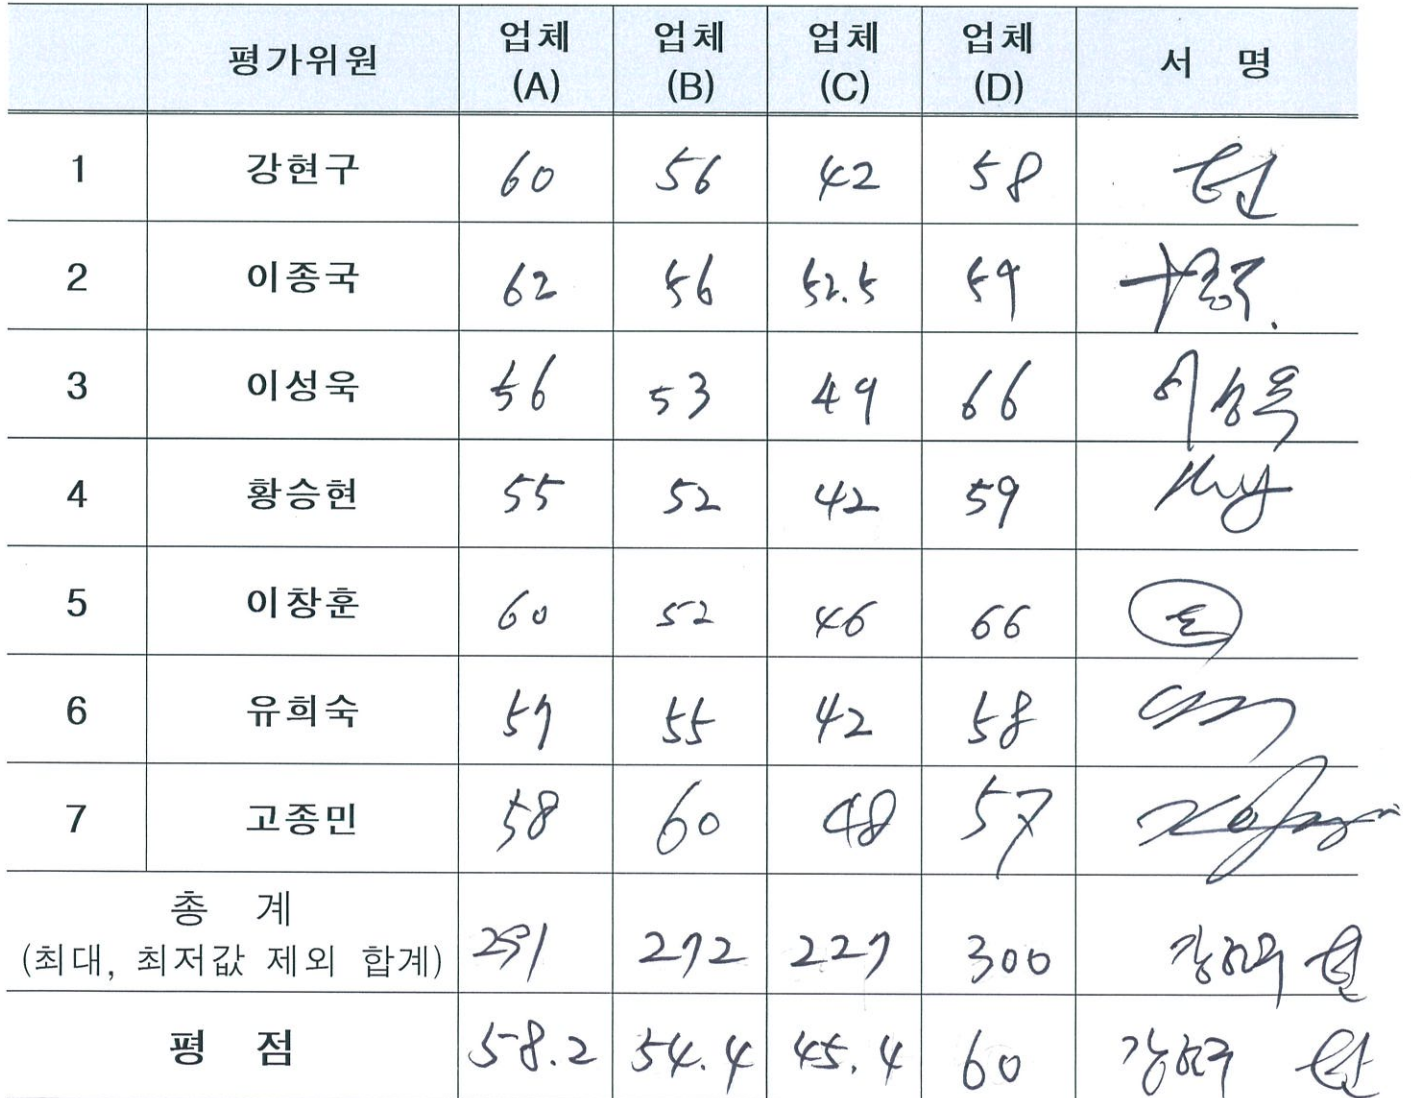 평가위원 업체 (A) 업체 (B) 업체 (C) 업체 (D) 서 명
1 강현구 60 56 42 58 현
2 이종국 62 56 52.5 59
3 이성욱 56 53 49 66 이성욱
4 황승현 55 52 42 59
5 이창훈 60 52 46 66
6 유희숙 57 55 42 58
7 고종민 58 60 48 57
총 계 291 272 227 300 강현구 현
(최대, 최저값 제외 합계)
평 점 58.2 54.4 45.4 60 강현구 현